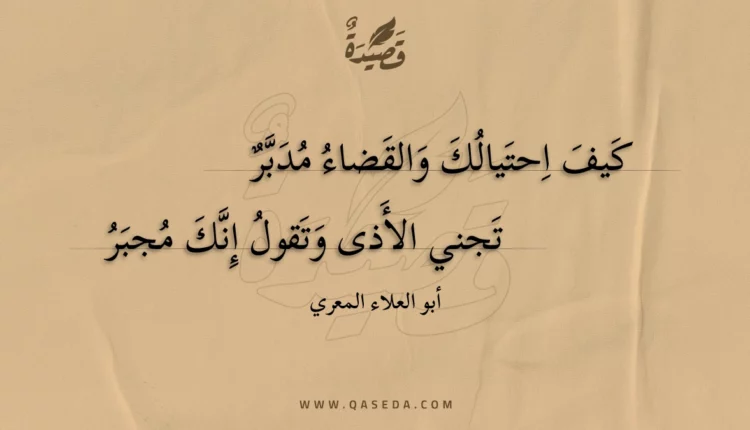 قَصِيدَةٌ
كَيفَ اِحتَيالُكَ وَالقَضاءُ مُدَبَّرٌ
تَجني الأَذى وَتَقولُ إِنَّكَ مُجبَرُ
أبو العلاء المعري
WWW.QASEDA.COM